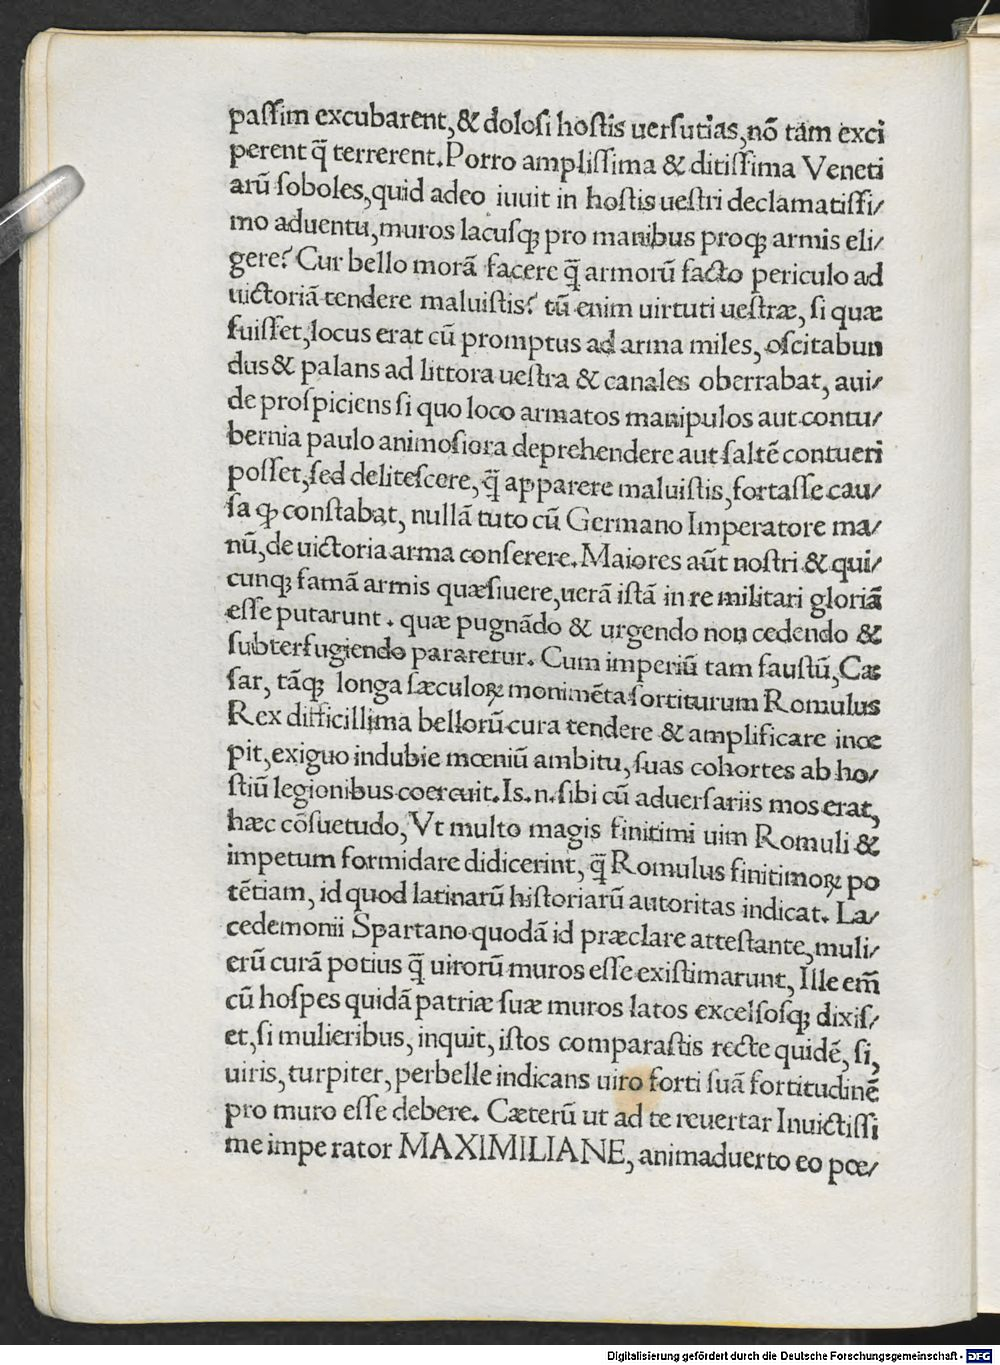 paſſim excubarent, & doloſi hoſtis uerſutias, nõ tam exci
perent q̃ terrerent. Porro ampliſſima & ditiſſima Veneti
arũ ſoboles, quid adeo iuuit in hoſtis ueſtri declamatiſſi/
mo aduentu, muros lacuſqꝫ pro manibus proqꝫ armis eli/
gere? Cur bello morã facere q̃ armorũ facto periculo ad
uictoriã tendere maluiſtis? tũ enim uirtuti ueſtræ, ſi quæ
fuiſſet, locus erat cũ promptus ad arma miles, oſcitabun
dus & palans ad littora ueſtra & canales oberrabat, aui/
de proſpiciens ſi quo loco armatos manipulos aut contu/
bernia paulo animoſiora deprehendere aut ſaltẽ contueri
poſſet, ſed deliteſcere, q̃ apparere maluiſtis, fortaſſe cau/
ſa ꝙ conſtabat, nullã tuto cũ Germano Imperatore ma/
nũ, de uictoria arma conſerere. Maiores aũt noſtri & qui/
cunqꝫ famã armis quæſiuere, uerã iſtã in re militari gloriã
eſſe putarunt. quæ pugnãdo & urgendo non cedendo &
ſubterfugiendo pararetur. Cum imperiũ tam fauſtũ, Cæ
ſar, tãqꝫ longa ſæculoꝝ monimẽta ſortiturum Romulus
Rex difficillima bellorũ cura tendere & amplificare incœ
pit, exiguo indubie mœniũ ambitu, ſuas cohortes ab ho/
ſtiũ legionibus coercuit. Is .n. ſibi cũ aduerſariis mos erat,
hæc cõſuetudo, Vt multo magis finitimi uim Romuli &
impetum formidare didicerint, q̃ Romulus finitimoꝝ po
tẽtiam, id quod latinarũ hiſtoriarũ autoritas indicat. La/
cedemonii Spartano quodã id præclare atteſtante, muli/
erũ curã potius q̃ uirorũ muros eſſe exiſtimarunt, Ille em̃
cũ hoſpes quidã patriæ ſuæ muros latos excelſoſqꝫ dixiſ/
et, ſi mulieribus, inquit, iſtos comparaſtis recte quidẽ, ſi,
uiris, turpiter, perbelle indicans uiro forti ſuã fortitudinẽ
pro muro eſſe debere. Cæterũ ut ad te reuertar Inuictiſſi
me impe rator MAXIMILIANE, animaduerto eo pœ/
Digitalisierung gefördert durch die Deutsche Forschungsgemeinschaft - DFG